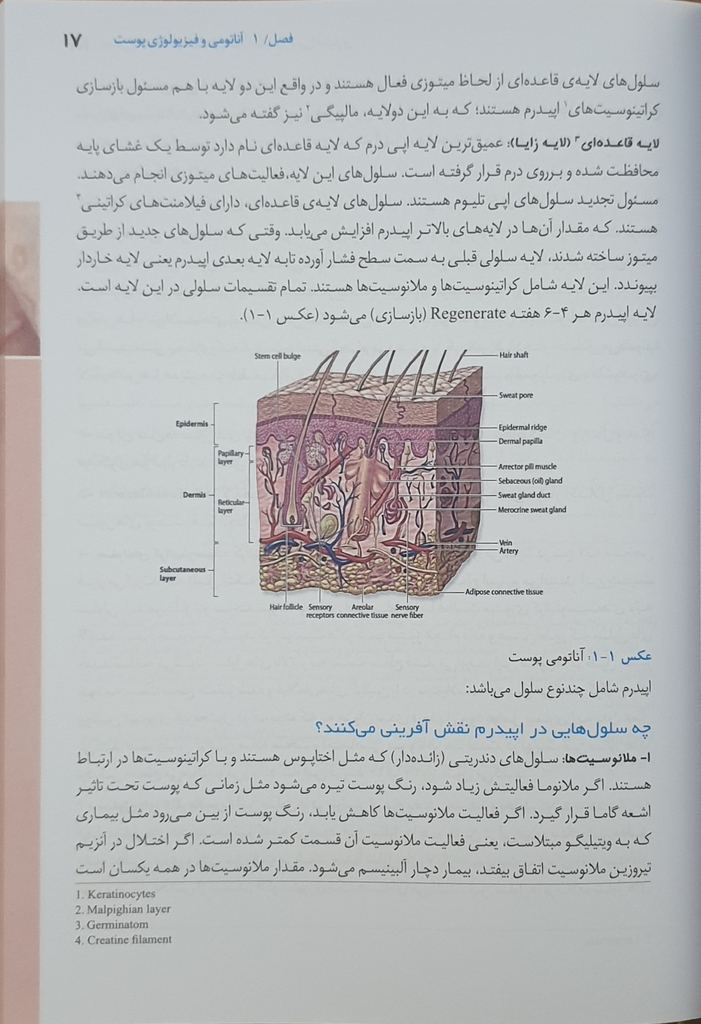 فصل/ ۱ آناتومی و فیزیولوژی پوست ۱۷
سلول‌های لایه‌ی قاعده‌ای از لحاظ میتوزی فعال هستند و در واقع این دو لایه با هم مسئول بازسازی
کراتینوسیت‌های۱ اپیدرم هستند؛ که به این دولایه، مالپیگی۲ نیز گفته می‌شود.
لایه قاعده‌ای۳ (لایه زایا): عمیق‌ترین لایه اپی درم که لایه قاعده‌ای نام دارد توسط یک غشای پایه
محافظت شده و برروی درم قرار گرفته است. سلول‌های این لایه،فعالیت‌های میتوزی انجام می‌دهند.
مسئول تجدید سلول‌های اپی تلیوم هستند. سلول‌های لایه‌ی قاعده‌ای، دارای فیلامنت‌های کراتینی۴
هستند. که مقدار آن‌ها در لایه‌های بالاتر اپیدرم افزایش می‌یابد. وقتی که سلول‌های جدید از طریق
میتوز ساخته شدند، لایه سلولی قبلی به سمت سطح فشار آورده تابه لایه بعدی اپیدرم یعنی لایه خاردار
بپیوندد. این لایه شامل کراتینوسیت‌ها و ملانوسیت‌ها هستند. تمام تقسیمات سلولی در این لایه است.
لایه اپیدرم هر ۴-۶ هفته Regenerate (بازسازی) می‌شود (عکس ۱-۱).
Stem cell bulge
Hair shaft
Sweat pore
Epidermis
Epidermal ridge
Dermal papilla
Papillary
layer
Arrector pili muscle
Sebaceous (oil) gland
Dermis
Reticular
layer
Sweat gland duct
Merocrine sweat gland
Vein
Artery
Subcutaneous
layer
Adipose connective tissue
Hair follicle Sensory Areolar Sensory
receptors connective tissue nerve fiber
عکس ۱-۱: آناتومی پوست
اپیدرم شامل چندنوع سلول می‌باشد:
چه سلول‌هایی در اپیدرم نقش آفرینی می‌کنند؟
۱- ملانوسیت‌ها: سلول‌های دندریتی (زائده‌دار) که مثل اختاپوس هستند و با کراتینوسیت‌ها در ارتباط
هستند. اگر ملانوما فعالیتش زیاد شود، رنگ پوست تیره می‌شود مثل زمانی که پوست تحت تاثیر
اشعه گاما قرار گیرد. اگر فعالیت ملانوسیت‌ها کاهش یابد، رنگ پوست از بین می‌رود مثل بیماری
که به ویتیلیگو مبتلاست، یعنی فعالیت ملانوسیت آن قسمت کمتر شده است. اگر اختلال در آنزیم
تیروزین ملانوسیت اتفاق بیفتد، بیمار دچار آلبینیسم می‌شود. مقدار ملانوسیت‌ها در همه یکسان است
1. Keratinocytes
2. Malpighian layer
3. Germinatom
4. Creatine filament